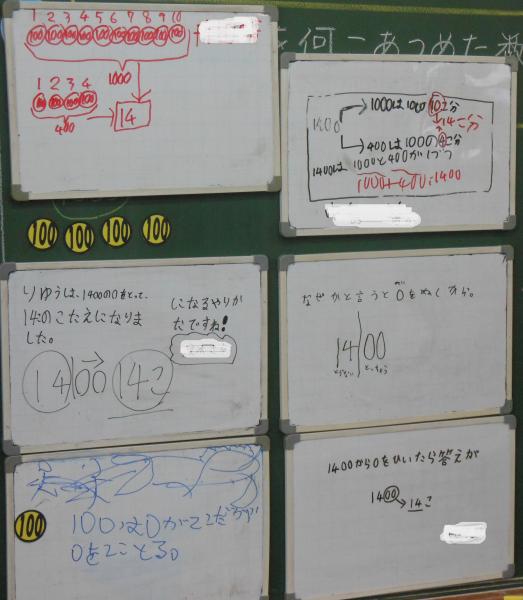 を何こあつめた数
1 2 3 4 5 6 7 8 9 10
100 100 100 100 100 100 100 100 100 100
1000
1 2 3 4
100 100 100 100
400
14
1400
1000は100の10こ分
14こ分
400は100の4こ分
1400は1000と400が1づつ
1000+400=1400
100 100 100 100
りゆうは、1400の0をとって、
14このこたえになりま
した。
になるやりか
たですね!
14|00→14こ
なぜかと言うと0をぬくから。
14|00
とらない とっちゃう
100
100は0が2こだから
0を2ことる。
1400から0をひいたら答えが
1400→14こ